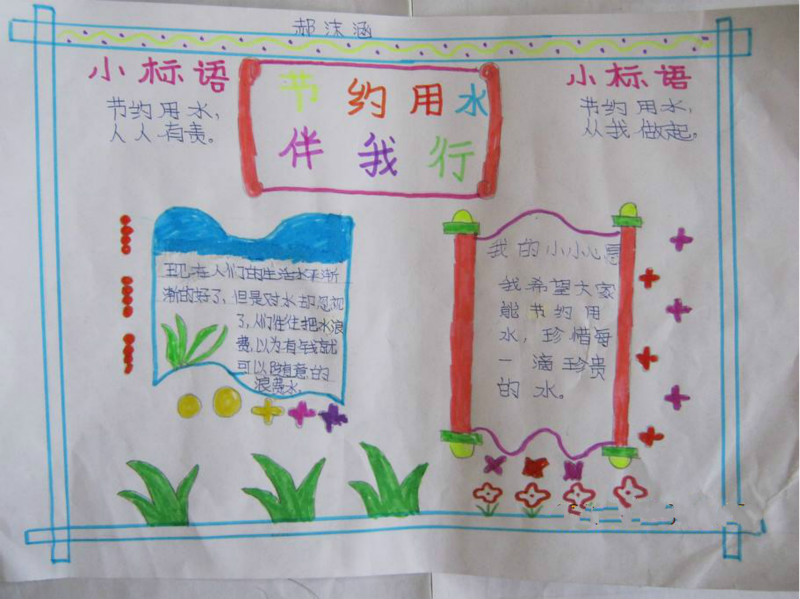 郝沫涵
小标语
节约用水,
人人有责。
节约用水
伴我行
小标语
节约用水,
从我做起。
现在人们的生活水平渐
渐的好了,但是对水却忽视
了,人们往往把水浪
费,以为有钱就
可以随意的
浪费水。
我的小小心愿
我希望大家
能节约用
水,珍惜每
一滴珍贵
的水。